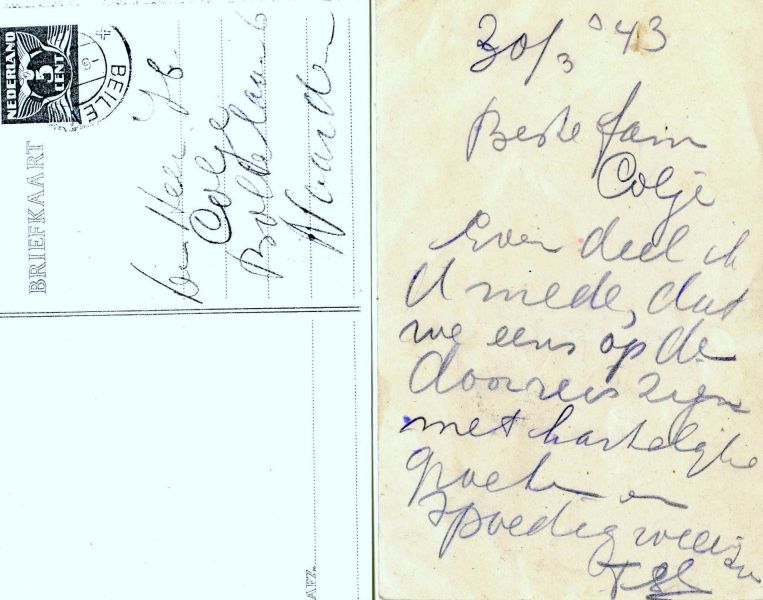 NEDERLAND
5
CENT
BEILE
BRIEFKAART
Heer
Colje
Naarden
AFZ.
30/3 '43
Beste fam
Colje
Even deel ik
U mede, dat
we eens op de
doorreis zijn
met hartelijke
groeten en
spoedig weerzien